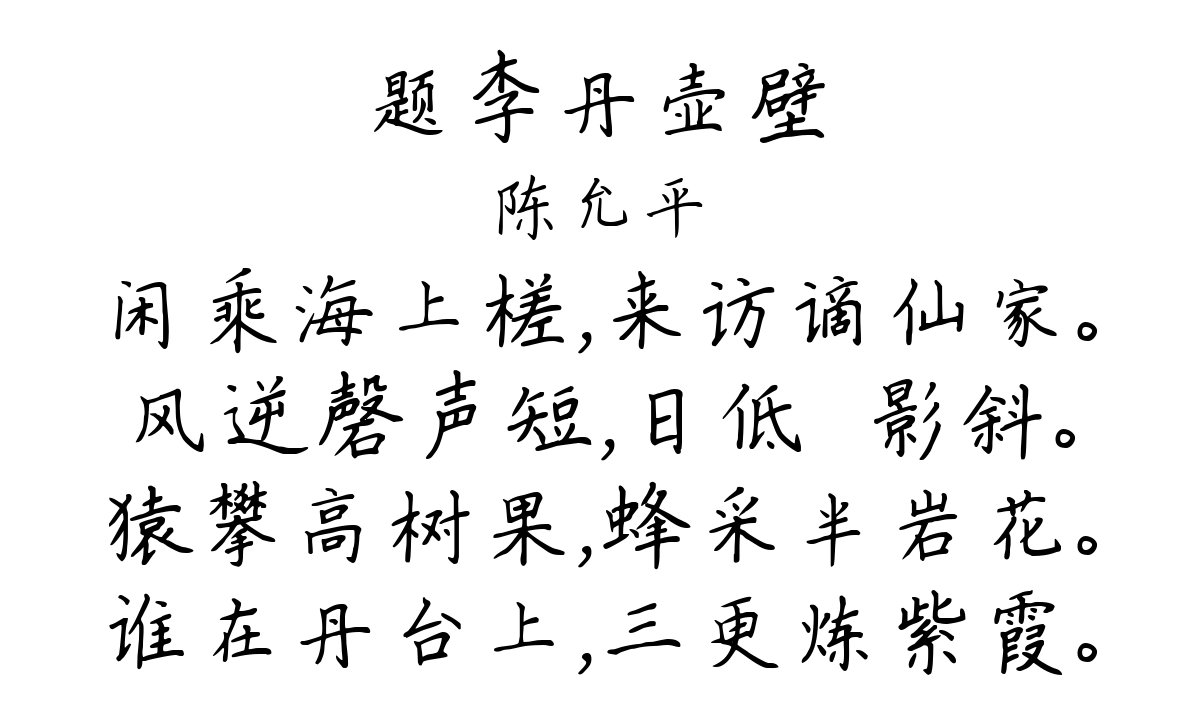 题李丹壶壁
陈允平
闲乘海上槎,来访谪仙家。
风逆磬声短,日低 影斜。
猿攀高树果,蜂采半岩花。
谁在丹台上,三更炼紫霞。